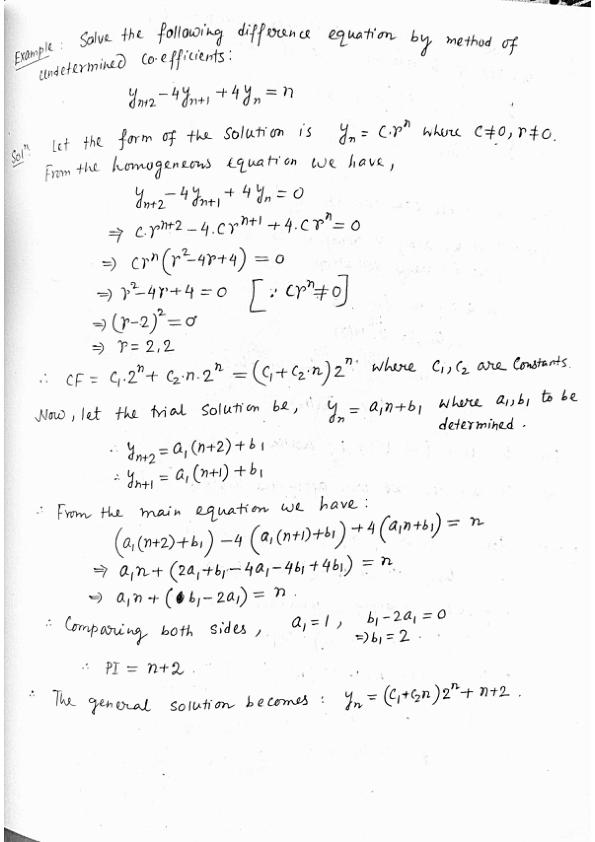 Example : Solve the following difference equation by method of
undetermined co-efficients :
yₙ₊₂ - 4yₙ₊₁ + 4yₙ = n
Solⁿ Let the form of the solution is yₙ = C.rⁿ where C≠0, r≠0.
From the homogeneous equation we have,
yₙ₊₂ - 4yₙ₊₁ + 4yₙ = 0
⇒ C.rⁿ⁺² - 4.Crⁿ⁺¹ + 4.Crⁿ = 0
⇒ Crⁿ(r²-4r+4) = 0
⇒ r²-4r+4 = 0 [∵ Crⁿ≠0]
⇒ (r-2)² = 0
⇒ r = 2,2
∴ CF = C₁.2ⁿ + C₂.n.2ⁿ = (C₁+C₂.n)2ⁿ. where C₁, C₂ are Constants.
Now, let the trial solution be, yₙ = a₁n+b₁ where a₁,b₁ to be
determined.
∴ yₙ₊₂ = a₁(n+2)+b₁
∴ yₙ₊₁ = a₁(n+1)+b₁
∴ From the main equation we have :
(a₁(n+2)+b₁) - 4(a₁(n+1)+b₁) + 4(a₁n+b₁) = n
⇒ a₁n + (2a₁+b₁-4a₁-4b₁+4b₁) = n
⇒ a₁n + (b₁-2a₁) = n.
∴ Comparing both sides, a₁=1, b₁-2a₁ = 0
⇒ b₁ = 2.
∴ PI = n+2.
∴ The general solution becomes : yₙ = (C₁+C₂n)2ⁿ + n+2.